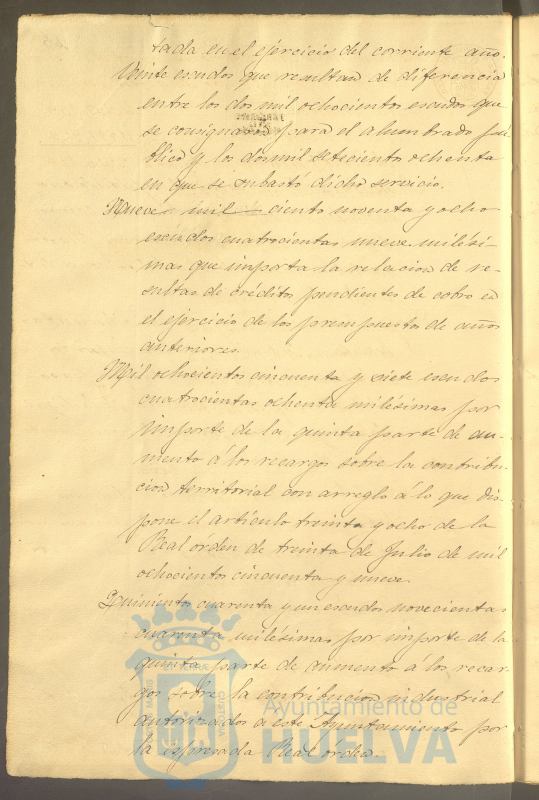 tada en el ejercicio del corriente año.
Veinte escudos que resultan de diferencia
entre los dos mil ochocientos escudos que
se consignaron para el alumbrado pú-
blico y los dos mil setecientos ochenta
en que se subastó dicho servicio.
Nueve mil ciento noventa y ocho
escudos cuatrocientas nueve milési-
mas que importa la relacion de re-
sultas de créditos pendientes de cobro en
el ejercicio de los presupuestos de años
anteriores.
Mil ochocientos cincuenta y siete escudos
cuatrocientas ochenta milésimas por
importe de la quinta parte de au-
mento á los recargos sobre la contribu-
cion territorial con arreglo á lo que dis-
pone el artículo treinta y ocho de la
Real orden de treinta de Julio de mil
ochocientos cincuenta y nueve.
Quinientos cuarenta y un escudos novecientas
cuarenta milésimas por importe de la
quinta parte de aumento a los recar-
gos sobre la contribucion industrial
autorizados a este Ayuntamiento por
la espresada Real orden.
Ayuntamiento de
HUELVA